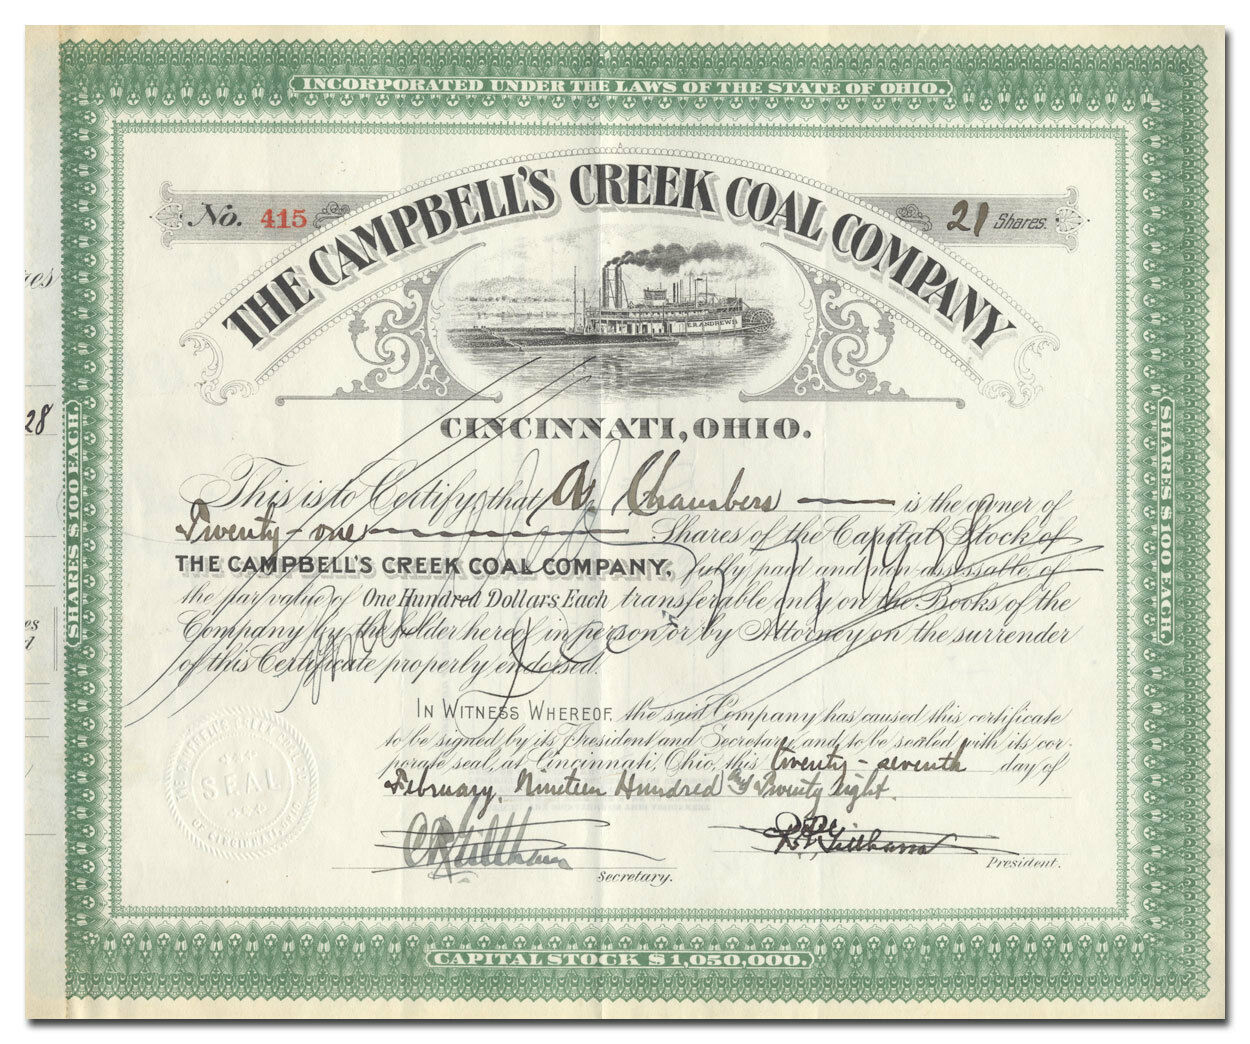 INCORPORATED UNDER THE LAWS OF THE STATE OF OHIO.
No. 415
21 Shares.
THE CAMPBELL'S CREEK COAL COMPANY
E.R. ANDREWS
CINCINNATI, OHIO.
This is to Certify, that A. Chambers is the owner of
Twenty-one Shares of the Capital Stock of
THE CAMPBELL'S CREEK COAL COMPANY, fully paid and non-assessable, of
the par value of One Hundred Dollars Each transferable only on the Books of the
Company by the holder hereof in person or by Attorney on the surrender
of this Certificate properly endorsed.
IN WITNESS WHEREOF, the said Company has caused this certificate
to be signed by its President and Secretary, and to be sealed with its cor-
porate seal, at Cincinnati, Ohio, this twenty-seventh day of
February, Nineteen Hundred and Twenty eight.
Secretary.
President.
SEAL
SHARES $100 EACH.
SHARES $100 EACH.
CAPITAL STOCK $1,050,000.
28